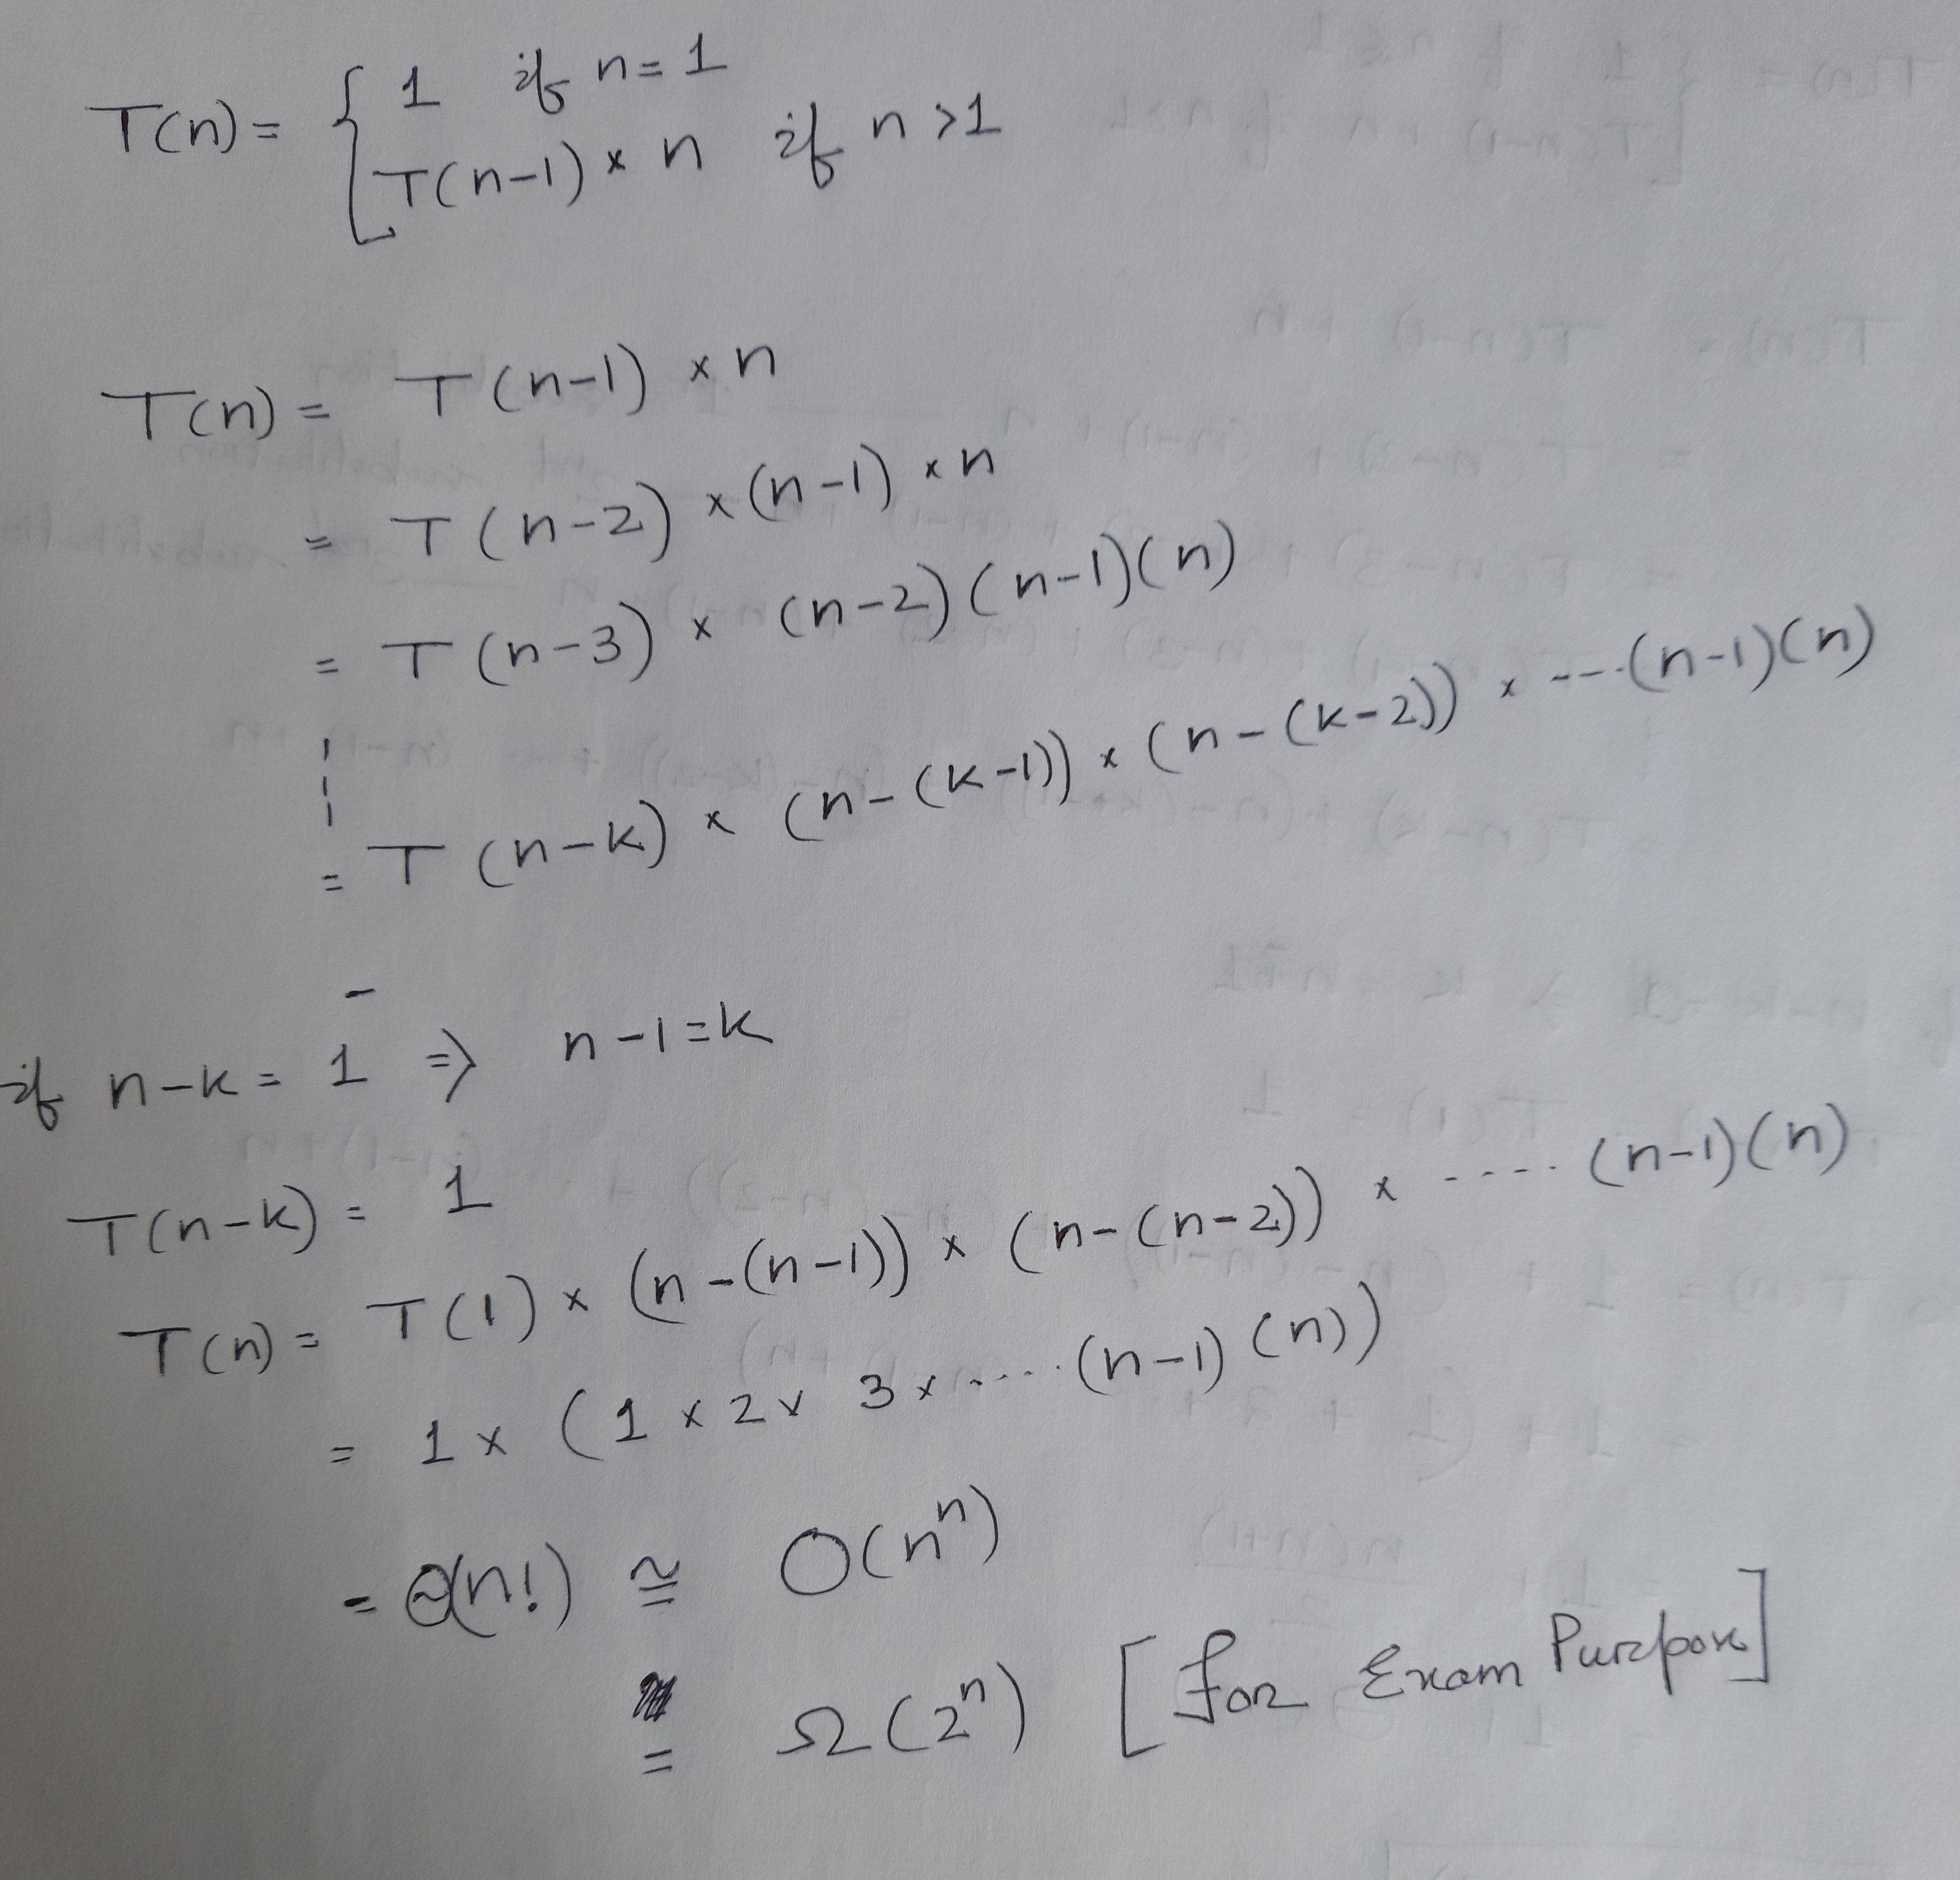 T(n) = { 1 if n = 1
T(n-1) × n if n > 1
T(n) = T(n-1) × n
= T(n-2) × (n-1) × n
= T(n-3) × (n-2)(n-1)(n)
= T(n-k) × (n-(k-1)) × (n-(k-2)) × ----(n-1)(n)
if n-k = 1 ⇒ n-1=k
T(n-k) = 1
T(n) = T(1) × (n-(n-1)) × (n-(n-2)) × ---- (n-1)(n)
= 1 × (1 × 2 × 3 × ....(n-1)(n))
= Θ(n!) ≅ O(nⁿ)
= Ω(2ⁿ) [for Exam Purpose]